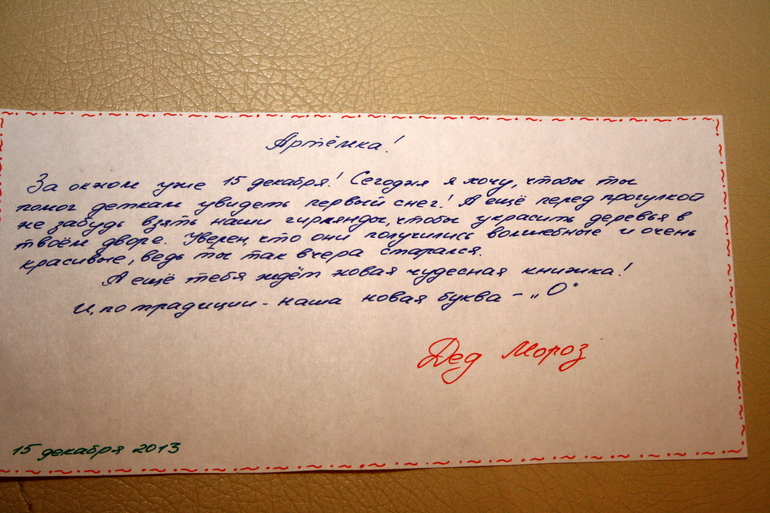 Артёмка!
За окном уже 15 декабря! Сегодня я хочу, чтобы ты
помог деткам увидеть первый снег! А ещё перед прогулкой
не забудь взять наши гирлянды, чтобы украсить деревья в
твоём дворе. Уверен, что они получились волшебные и очень
красивые, ведь ты так вчера старался.
А ещё тебя ждёт новая чудесная книжка!
И, по традиции - наша новая буква - „О“
Дед Мороз
15 декабря 2013